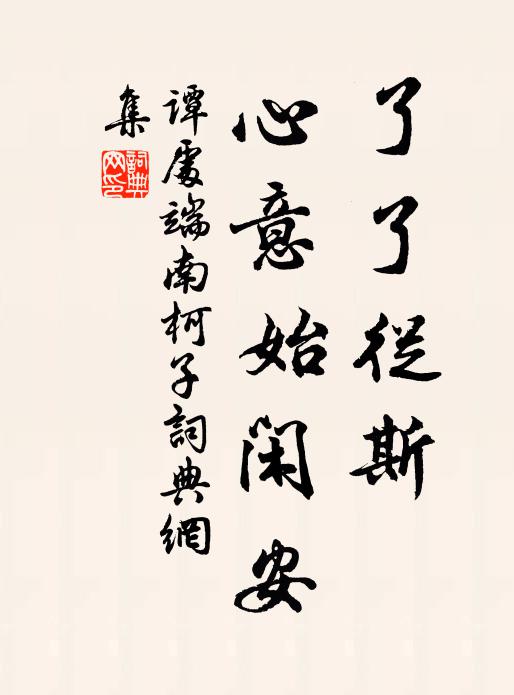 了了從斯
心意始閑安
譚處端南柯子詞典網
集
詞典网印